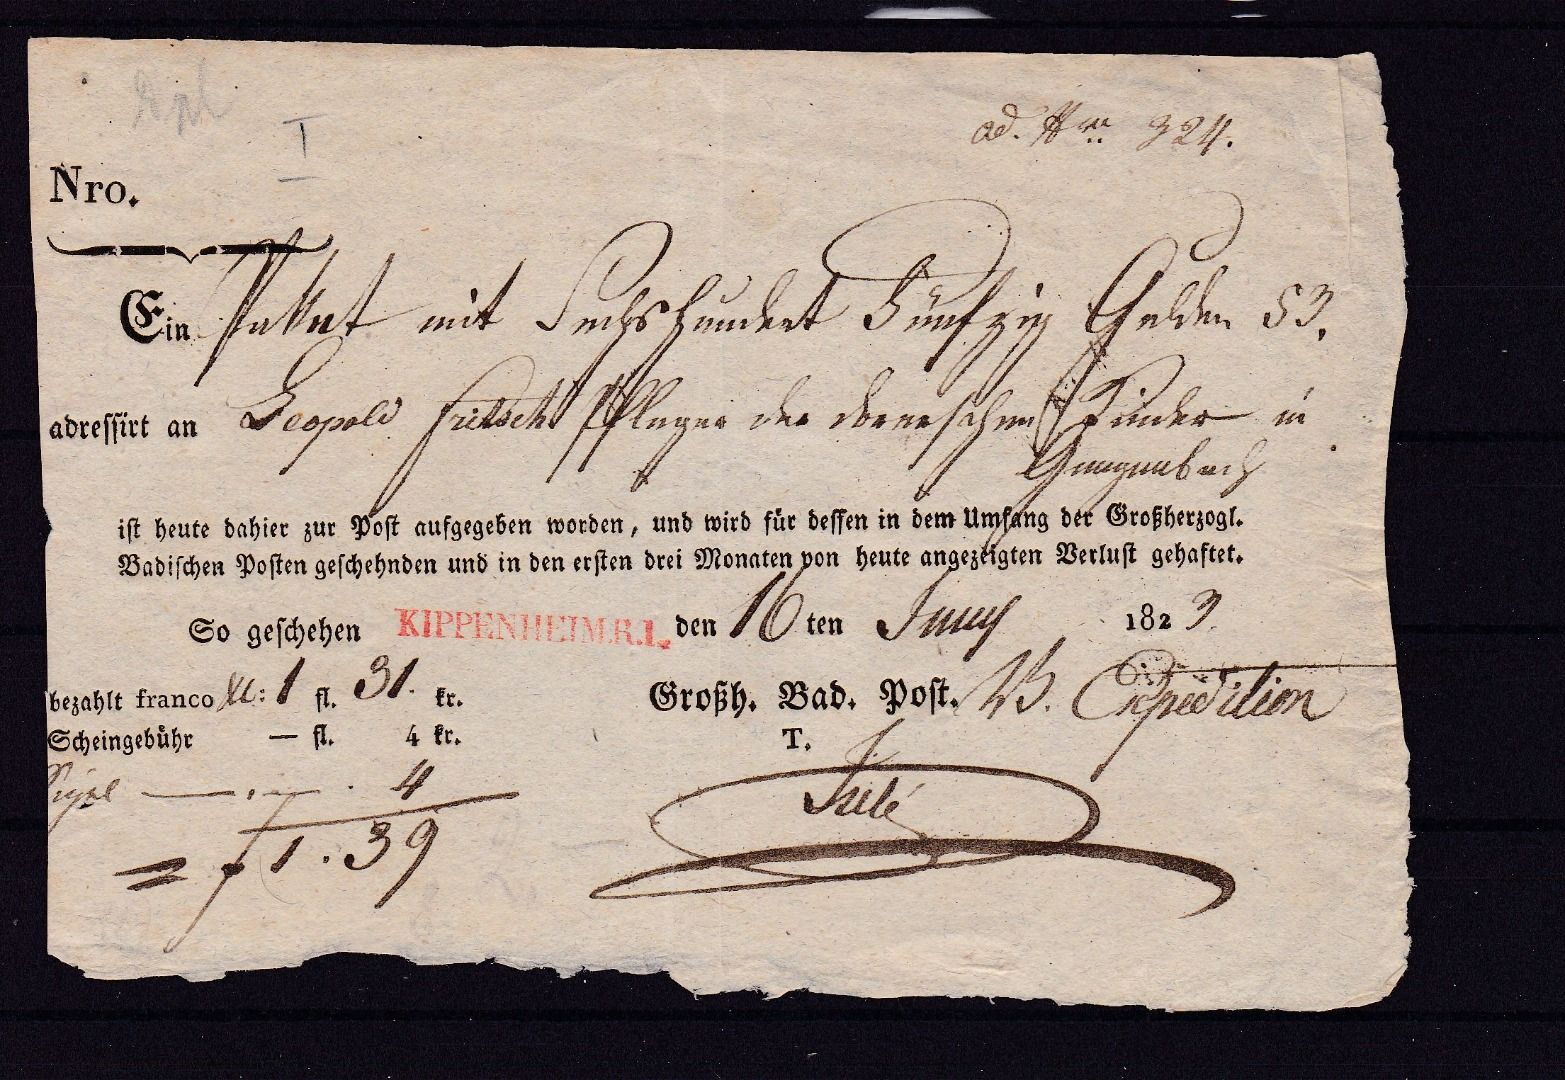 I
ad. Nro. 324.
Nro.
Ein Paket mit Sechshundert Fünfzig Gulden 53.
adressirt an Leopold Fritsch Pfleger der Kinder in
Gengenbach
ist heute dahier zur Post aufgegeben worden, und wird für dessen in dem Umfang der Großherzogl.
Badischen Posten geschehnden und in den ersten drei Monaten von heute angezeigten Verlust gehaftet.
So geschehen KIPPENHEIM.R.1. den 16 ten Juny 1823
bezahlt franco 1 fl. 31. kr. Großh. Bad. Post. Expedition
Scheingebühr — fl. 4 kr. T.
4
= f 1.39